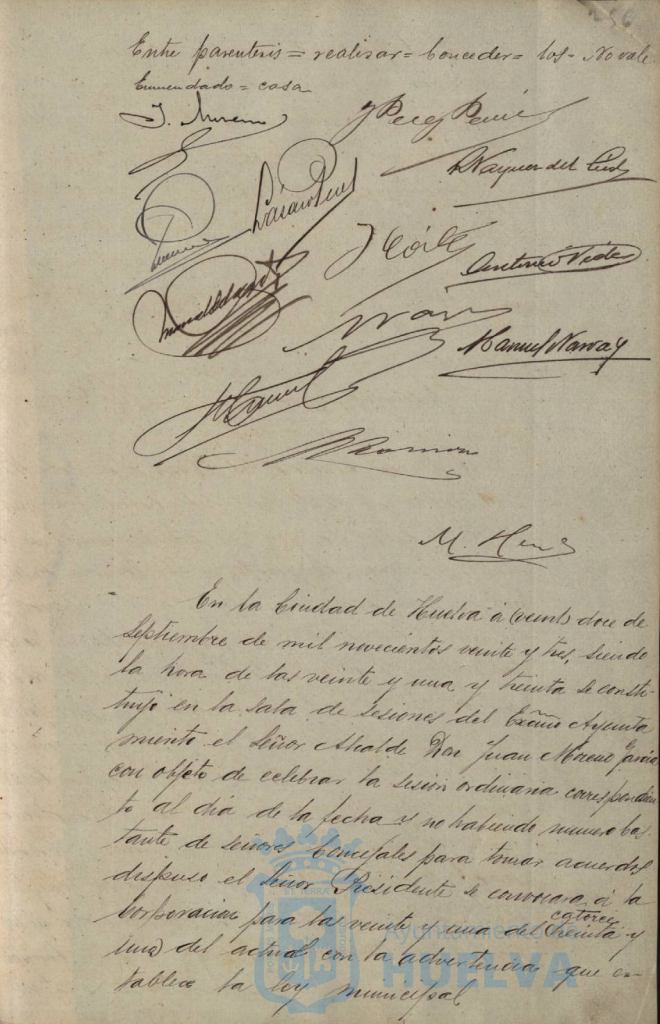 256
Entre parentesis = realizar = Conceder = los = No vale
Enmendado = casa
J. Moreno
J Perez
Vazquez del
Lázaro Perez
Antonio
Manuel Narvay
M. Hern
En la Ciudad de Huelva á (veint) doce de
Septiembre de mil novecientos veinte y tres, siendo
la hora de las veinte y una y treinta se consti-
tuyó en la sala de sesiones del Excmo Ayunta
miento el Señor Alcalde Don Juan Moreno García
con objeto de celebrar la sesión ordinaria correspondien
te al dia de la fecha y no habiendo numero bas
tante de señores Concejales para tomar acuerdos
dispuso el Señor Presidente se convocara á la
Corporacion para las veinte y una del catorce (treinta y
uno) del actual con la advertencia que es-
tablece la ley municipal
Ayuntamiento de
HUELVA